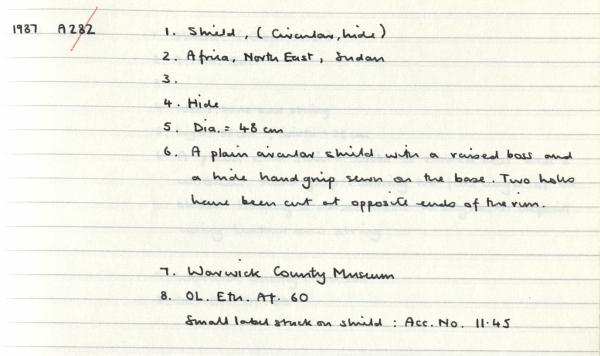 1987 A282 1. Shield, (Circular, hide)
2. Africa, North East, Sudan
3.
4. Hide
5. Dia. = 48 cm
6. A plain circular shield with a raised boss and
a hide handgrip sewn on the base. Two holes
have been cut at opposite ends of the rim.
7. Warwick County Museum
8. OL. Eth. Af. 60
Small label stuck on shield : Acc. No. 11.45